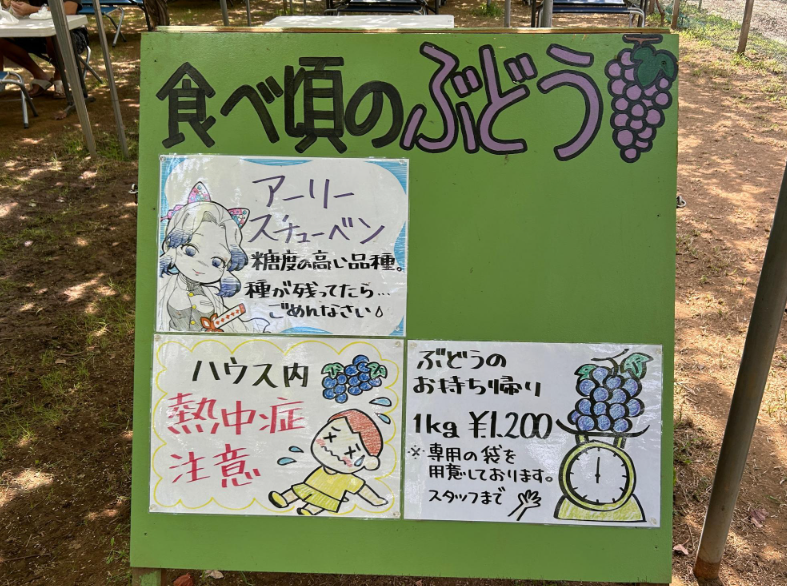 食べ頃のぶどう
アーリー
スチューベン
糖度の高い品種。
種が残ってたら…
ごめんなさい
ハウス内
熱中症
注意
ぶどうの
お持ち帰り
1kg ¥1.200
※専用の袋を
用意しております。
スタッフまで